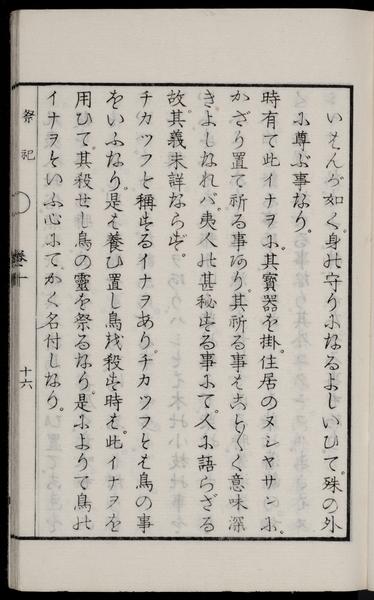 いはんが如く。身の守りになるよしいひて。殊の外
に尊ぶ事なり。
時有て此イナヲに。其寳器を掛。住居のヌシヤサンに。
かざり置て祈る事あり。其祈る事はことごとく意味深
きよしなれバ。夷人の甚秘する事にて。人に語らざる
故。其義未詳ならず。
チカツフと稱するイナヲあり。チカツフとは鳥の事
をいふなり。是は養ひ置し鳥を殺す時は。此イナヲを
用ひて。其殺せし鳥の靈を祭るなり。是によりて鳥の
イナヲといふ心にてかく名付しなり。
祭祀
十六